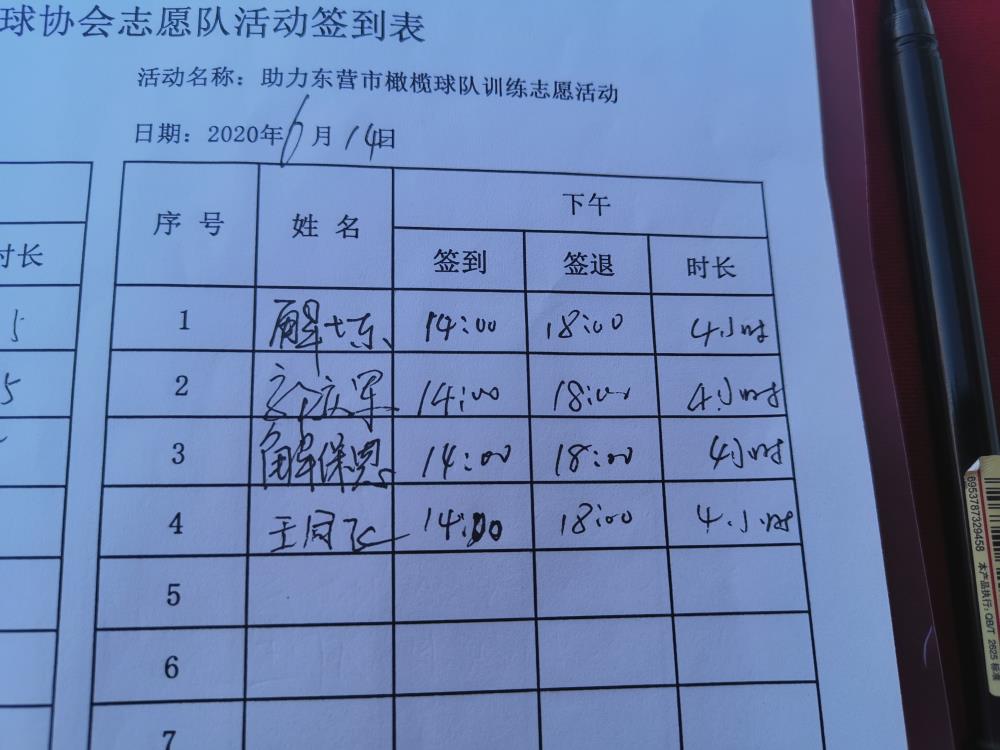 球协会志愿队活动签到表
活动名称：助力东营市橄榄球队训练志愿活动
日期：2020年6月14日
时长
5
5
序号 姓名 下午
签到 签退 时长
1 解 东 14:00 18:00 4小时
2 庆军 14:00 18:00 4小时
3 解保恩 14:00 18:00 4小时
4 王同飞 14:00 18:00 4小时
5
6
7
6953787329458
本产品执行：QB/T 2625 标准